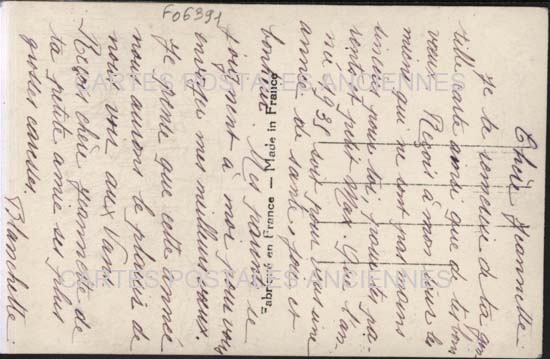 F06391
Chère Jeannette.
Je te remercie de ta gen-
tille carte ainsi que de tes bons
vœux. Reçois à mon tour les
miens qui ne sont pas moins
sincères pour toi, pour tes pa-
rents et petit Max. Que l'an-
née 1935 soit pour vous une
année de santé, joie et
bonheur. Mes parents se
joignent à moi pour vous
envoyer mes meilleurs vœux.
Je pense que cette année
nous aurons le plaisir de
vous voir aux Vans.
Reçois chère Jeannette de
ta petite amie ses plus
grosses caresses.
Blanchette
Fabriqué en France — Made in France
CARTES POSTALES ANCIENNES
CARTES POSTALES ANCIENNES